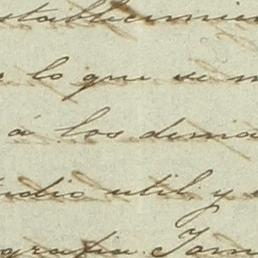 stablecimien
lo que se m
á los demá
udio util y
grafia. Tam